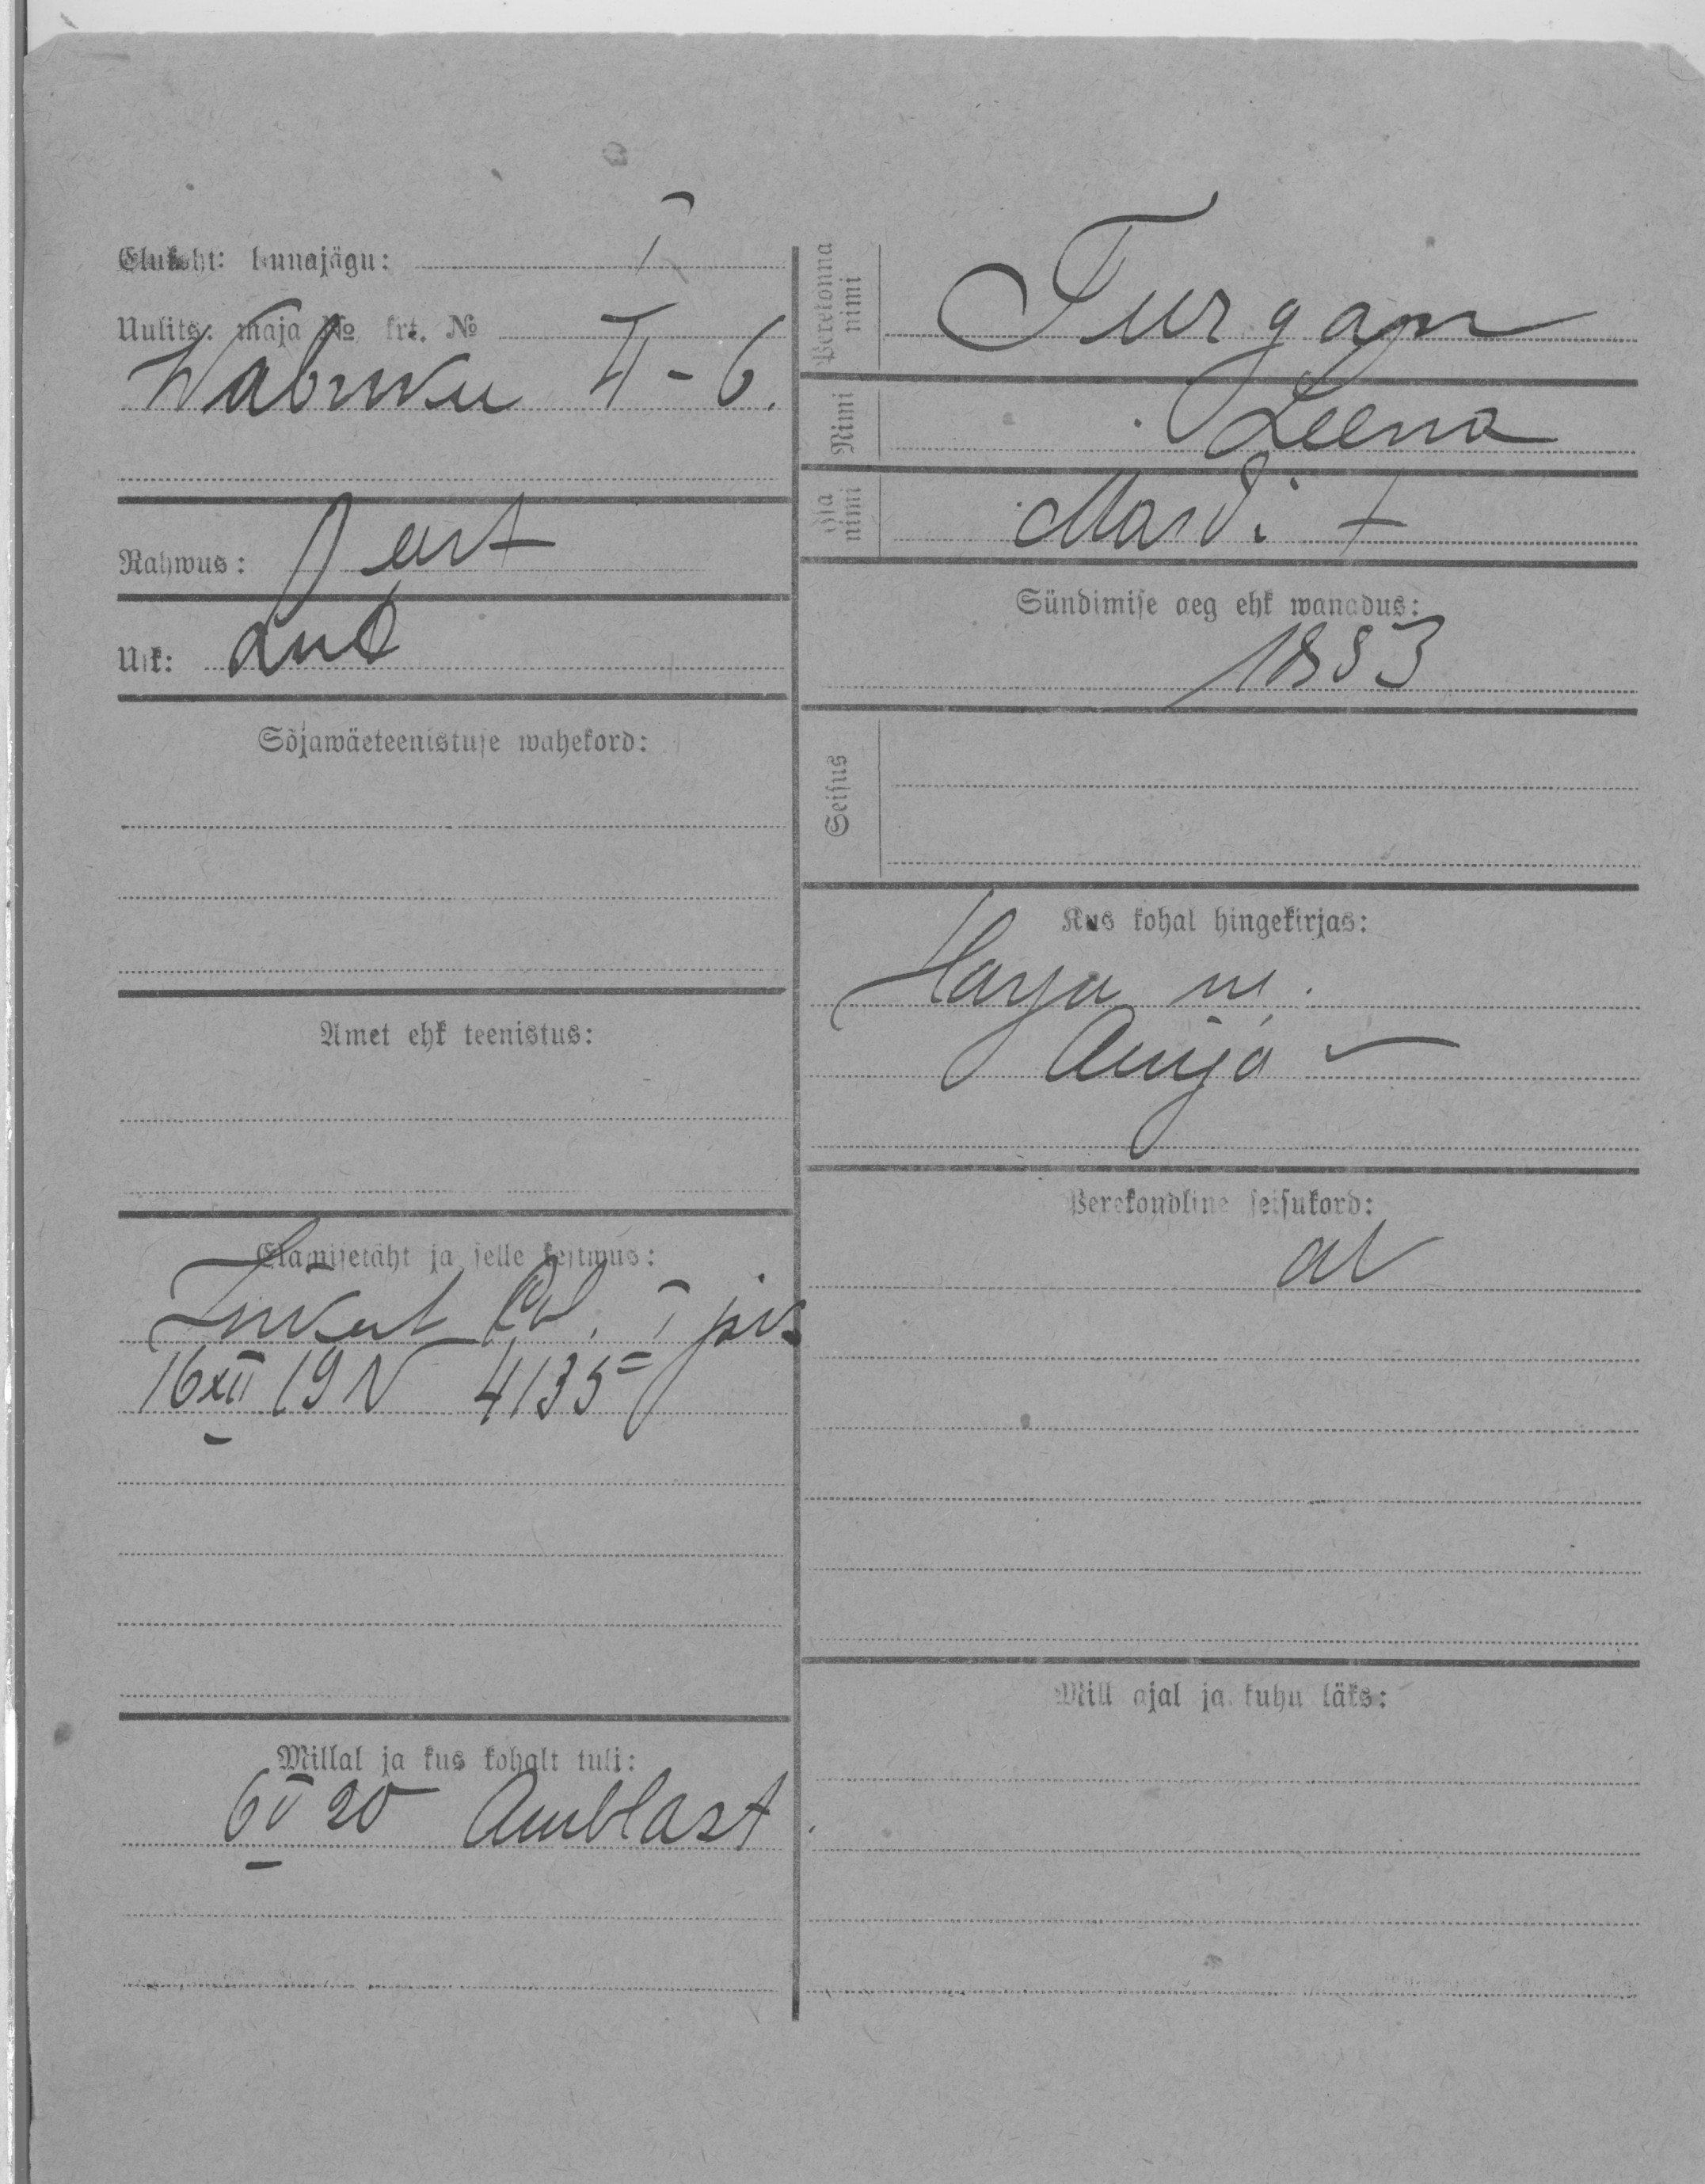 Elukoht: linnajägu: I
Uulits: maja № krt. №
Wabriku 4 - 6.
Rahwus: eest
Usk: Lut
Sõjawäeteenistuse wahekord:
Amet ehk teenistus:
Elamisetäht ja selle kestwus:
I jsk
16 XII 19 N 4135
Millal ja kus kohalt tuli:
6 V 20 Amblast
Perekonna nimi
Turgan
Nimi
Leena
Isa nimi
Mardi t
Sündimise aeg ehk wanadus:
1853
Seisus
Kus kohal hingekirjas:
Harju m.
Perekondline seisukord:
Mill ajal ja kuhu läks: